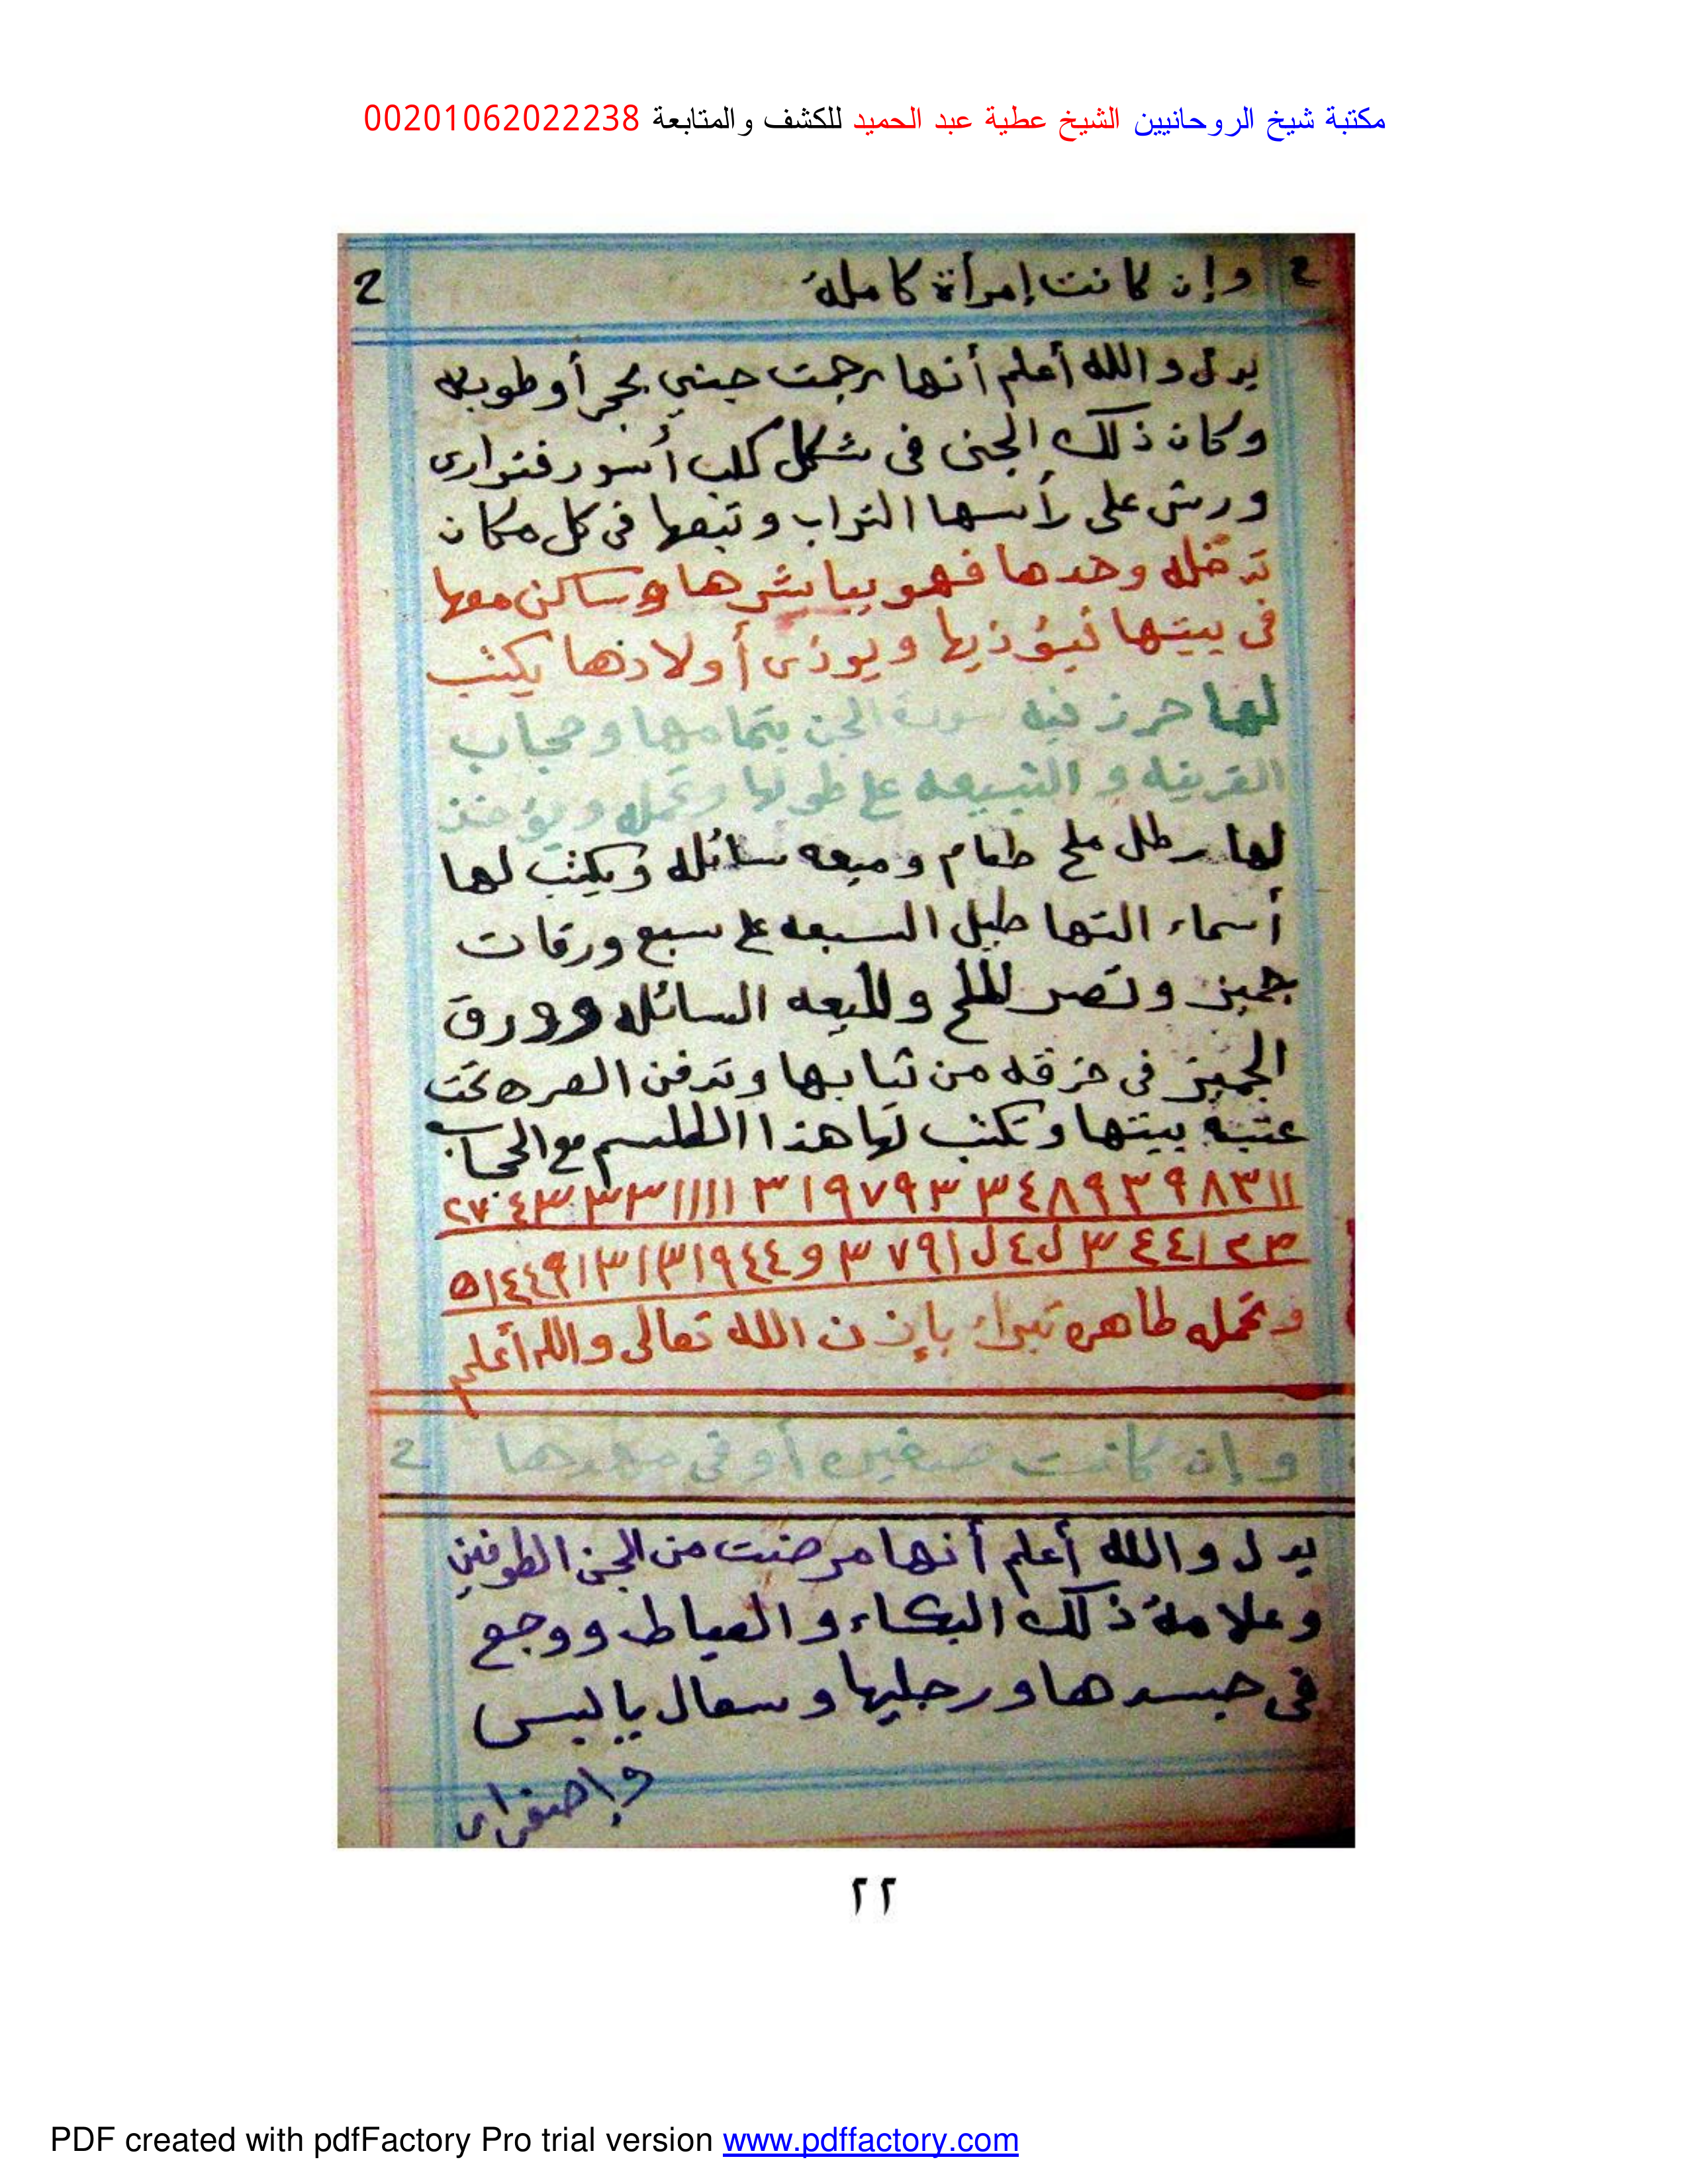 مكتبة شيخ الروحانيين الشيخ عطية عبد الحميد للكشف والمتابعة 00201062022238
2 وإن كانت إمرأة كاملة 2
يدل والله أعلم أنها رجمت جني بحجر أو طوبه
وكان ذلك الجنى فى شكل كلب أسود فتوارى
ورش على رأسها التراب وتبعها فى كل مكان
تدخله وحدها فهو يباشرها وساكن معها
فى بيتها فيؤذيها ويوذى أولادها يكتب
لها حرز فيه سورة الجن بتمامها وحجاب
القرينه و السبعه على طولها وتحمله ويؤخذ
لها رطل ملح طعام وميعه سائله ويكتب لها
أسماء التهاطيل السبعه على سبع ورقات
جميز وتصر الملح والميعه السائله وورق
الجميز فى خرقه من ثيابها وتدفن الصره تحت
عتبة بيتها وتكتب لها هذا الطلسم مع الحجاب
١١٣٨٩٣٩٨٤٣ ٣٩٧٩١٣ ١١١١٣٣٣٤٠٢٧
وتحمله طاهره تبراء بإذن الله تعالى والله أعلم
وإن كانت صغيره أو فى مهدها 2
يدل والله أعلم أنها مرضت من الجن الطوفين
وعلامة ذلك البكاء والعياط ووجع
فى جسدها ورجليها وسعال يابس
وإصفرار
٢٢
PDF created with pdfFactory Pro trial version www.pdffactory.com